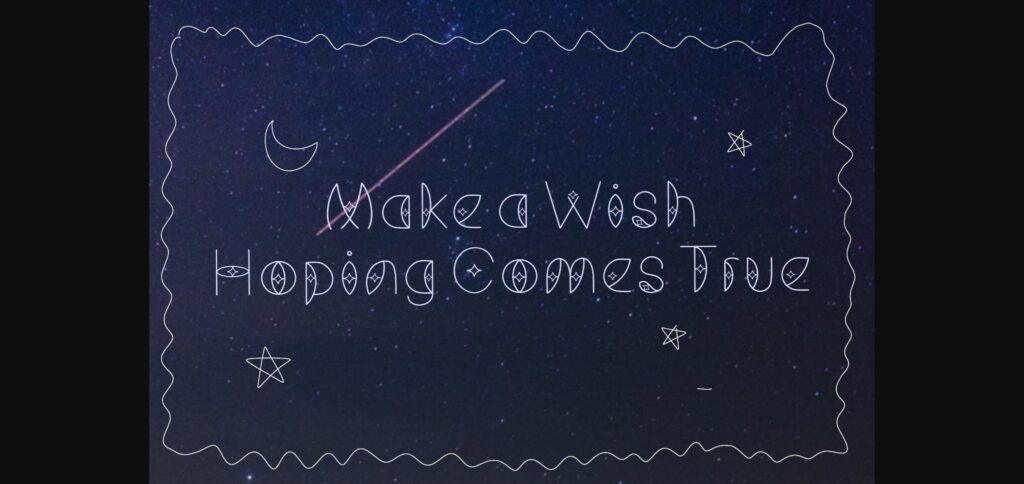 Make a Wish
Hoping Comes True